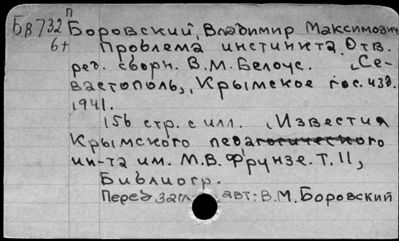 Бв732 п Боровский, Владимир Максимович
6+ Проблема инстинкта. Отв.
ред. сборн. В.М. Белоус. Се-
вастополь, Крымское гос. изд.
1941.
156 стр. с илл. (Известия
Крымского педагогического
ин-та им. М.В. Фрунзе. Т. 11,
Библиогр.
Перед загл. авт.: В.М. Боровский